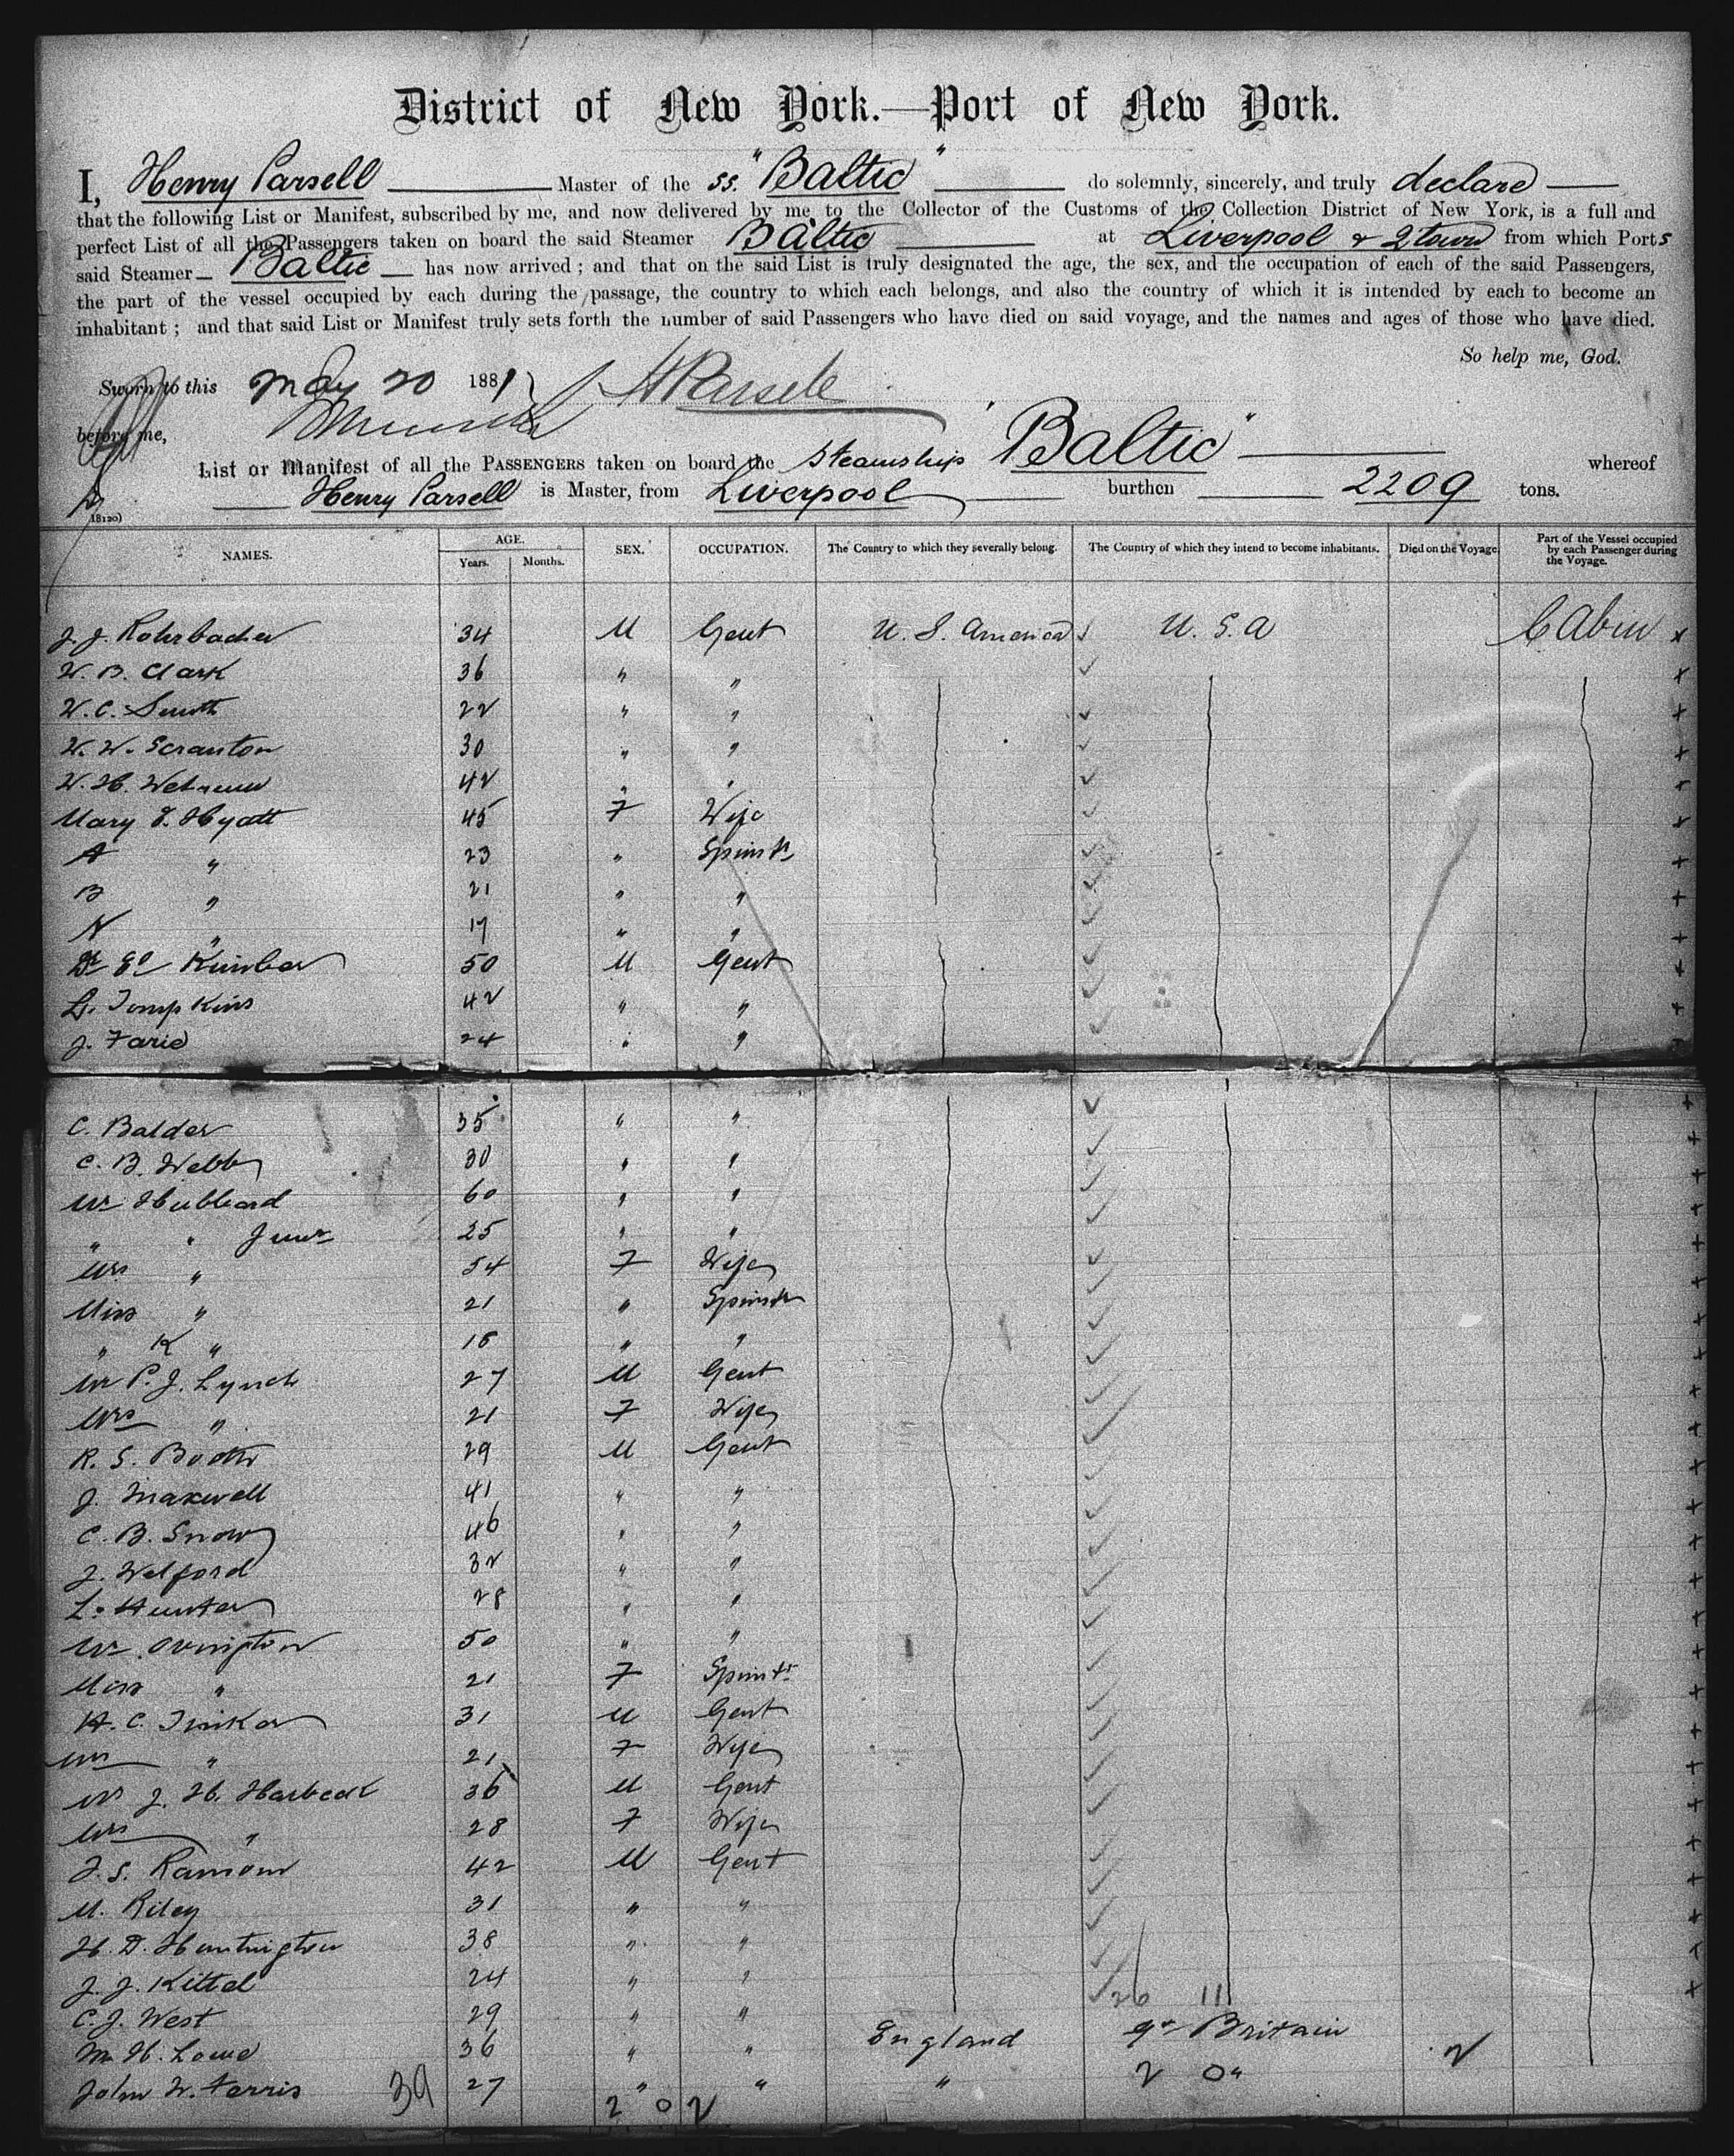 District of New York.—Port of New York.
I, Henry Parsell Master of the SS. "Baltic" do solemnly, sincerely, and truly declare
that the following List or Manifest, subscribed by me, and now delivered by me to the Collector of the Customs of the Collection District of New York, is a full and
perfect List of all the Passengers taken on board the said Steamer Baltic at Liverpool & Qtown from which Ports
said Steamer Baltic has now arrived; and that on the said List is truly designated the age, the sex, and the occupation of each of the said Passengers,
the part of the vessel occupied by each during the passage, the country to which each belongs, and also the country of which it is intended by each to become an
inhabitant; and that said List or Manifest truly sets forth the number of said Passengers who have died on said voyage, and the names and ages of those who have died.
So help me, God.
Sworn to this May 20 1881 HParsell
before me,
List or Manifest of all the PASSENGERS taken on board the Steamship "Baltic" whereof
Henry Parsell is Master, from Liverpool burthen 2209 tons.
18120)
NAMES. AGE. Years. Months. SEX. OCCUPATION. The Country to which they severally belong. The Country of which they intend to become inhabitants. Died on the Voyage. Part of the Vessel occupied by each Passenger during the Voyage.
J. J. Rohrbacher 34 M Gent U. S. America U. S. A Cabin
W. B. Clark 36 " "
W. C. Smith 22 " "
W. W. Scranton 30 " "
W. H. 42 " "
Mary E. Hyatt 45 F Wife
A " 23 " Spinstr
B " 21 " "
N " 17 " "
Dr Ed Kimber 50 M Gent
D. Tompkins 42 " "
J. Farie 24 " "
C. Balder 35 " "
C. B. Webb 30 " "
Mr Hubbard 60 " "
" " Junr 25 " "
Mrs " 54 F Wife
Miss " 21 " Spinstr
" K " 18 " "
Mr P. J. Lynch 27 M Gent
Mrs " 21 F Wife
R. S. Booth 29 M Gent
J. Maxwell 41 " "
C. B. Snow 46 " "
J. Welford 32 " "
L. Hunter 28 " "
Mr Ovington 50 " "
Miss " 21 F Spinstr
H. C. Tinker 31 M Gent
Mrs " 21 F Wife
Mr J. H. Harbeck 36 M Gent
Mrs " 28 F Wife
J. S. Ransom 42 M Gent
M. Riley 31 " "
H. D. Huntington 38 " "
J. J. Kittel 24 " "
C. J. West 29 " " 26 111
M. H. Lowe 36 " " England Gt Britain 2
John W. Ferris 39 27 " " " 2 0"
2 0 2